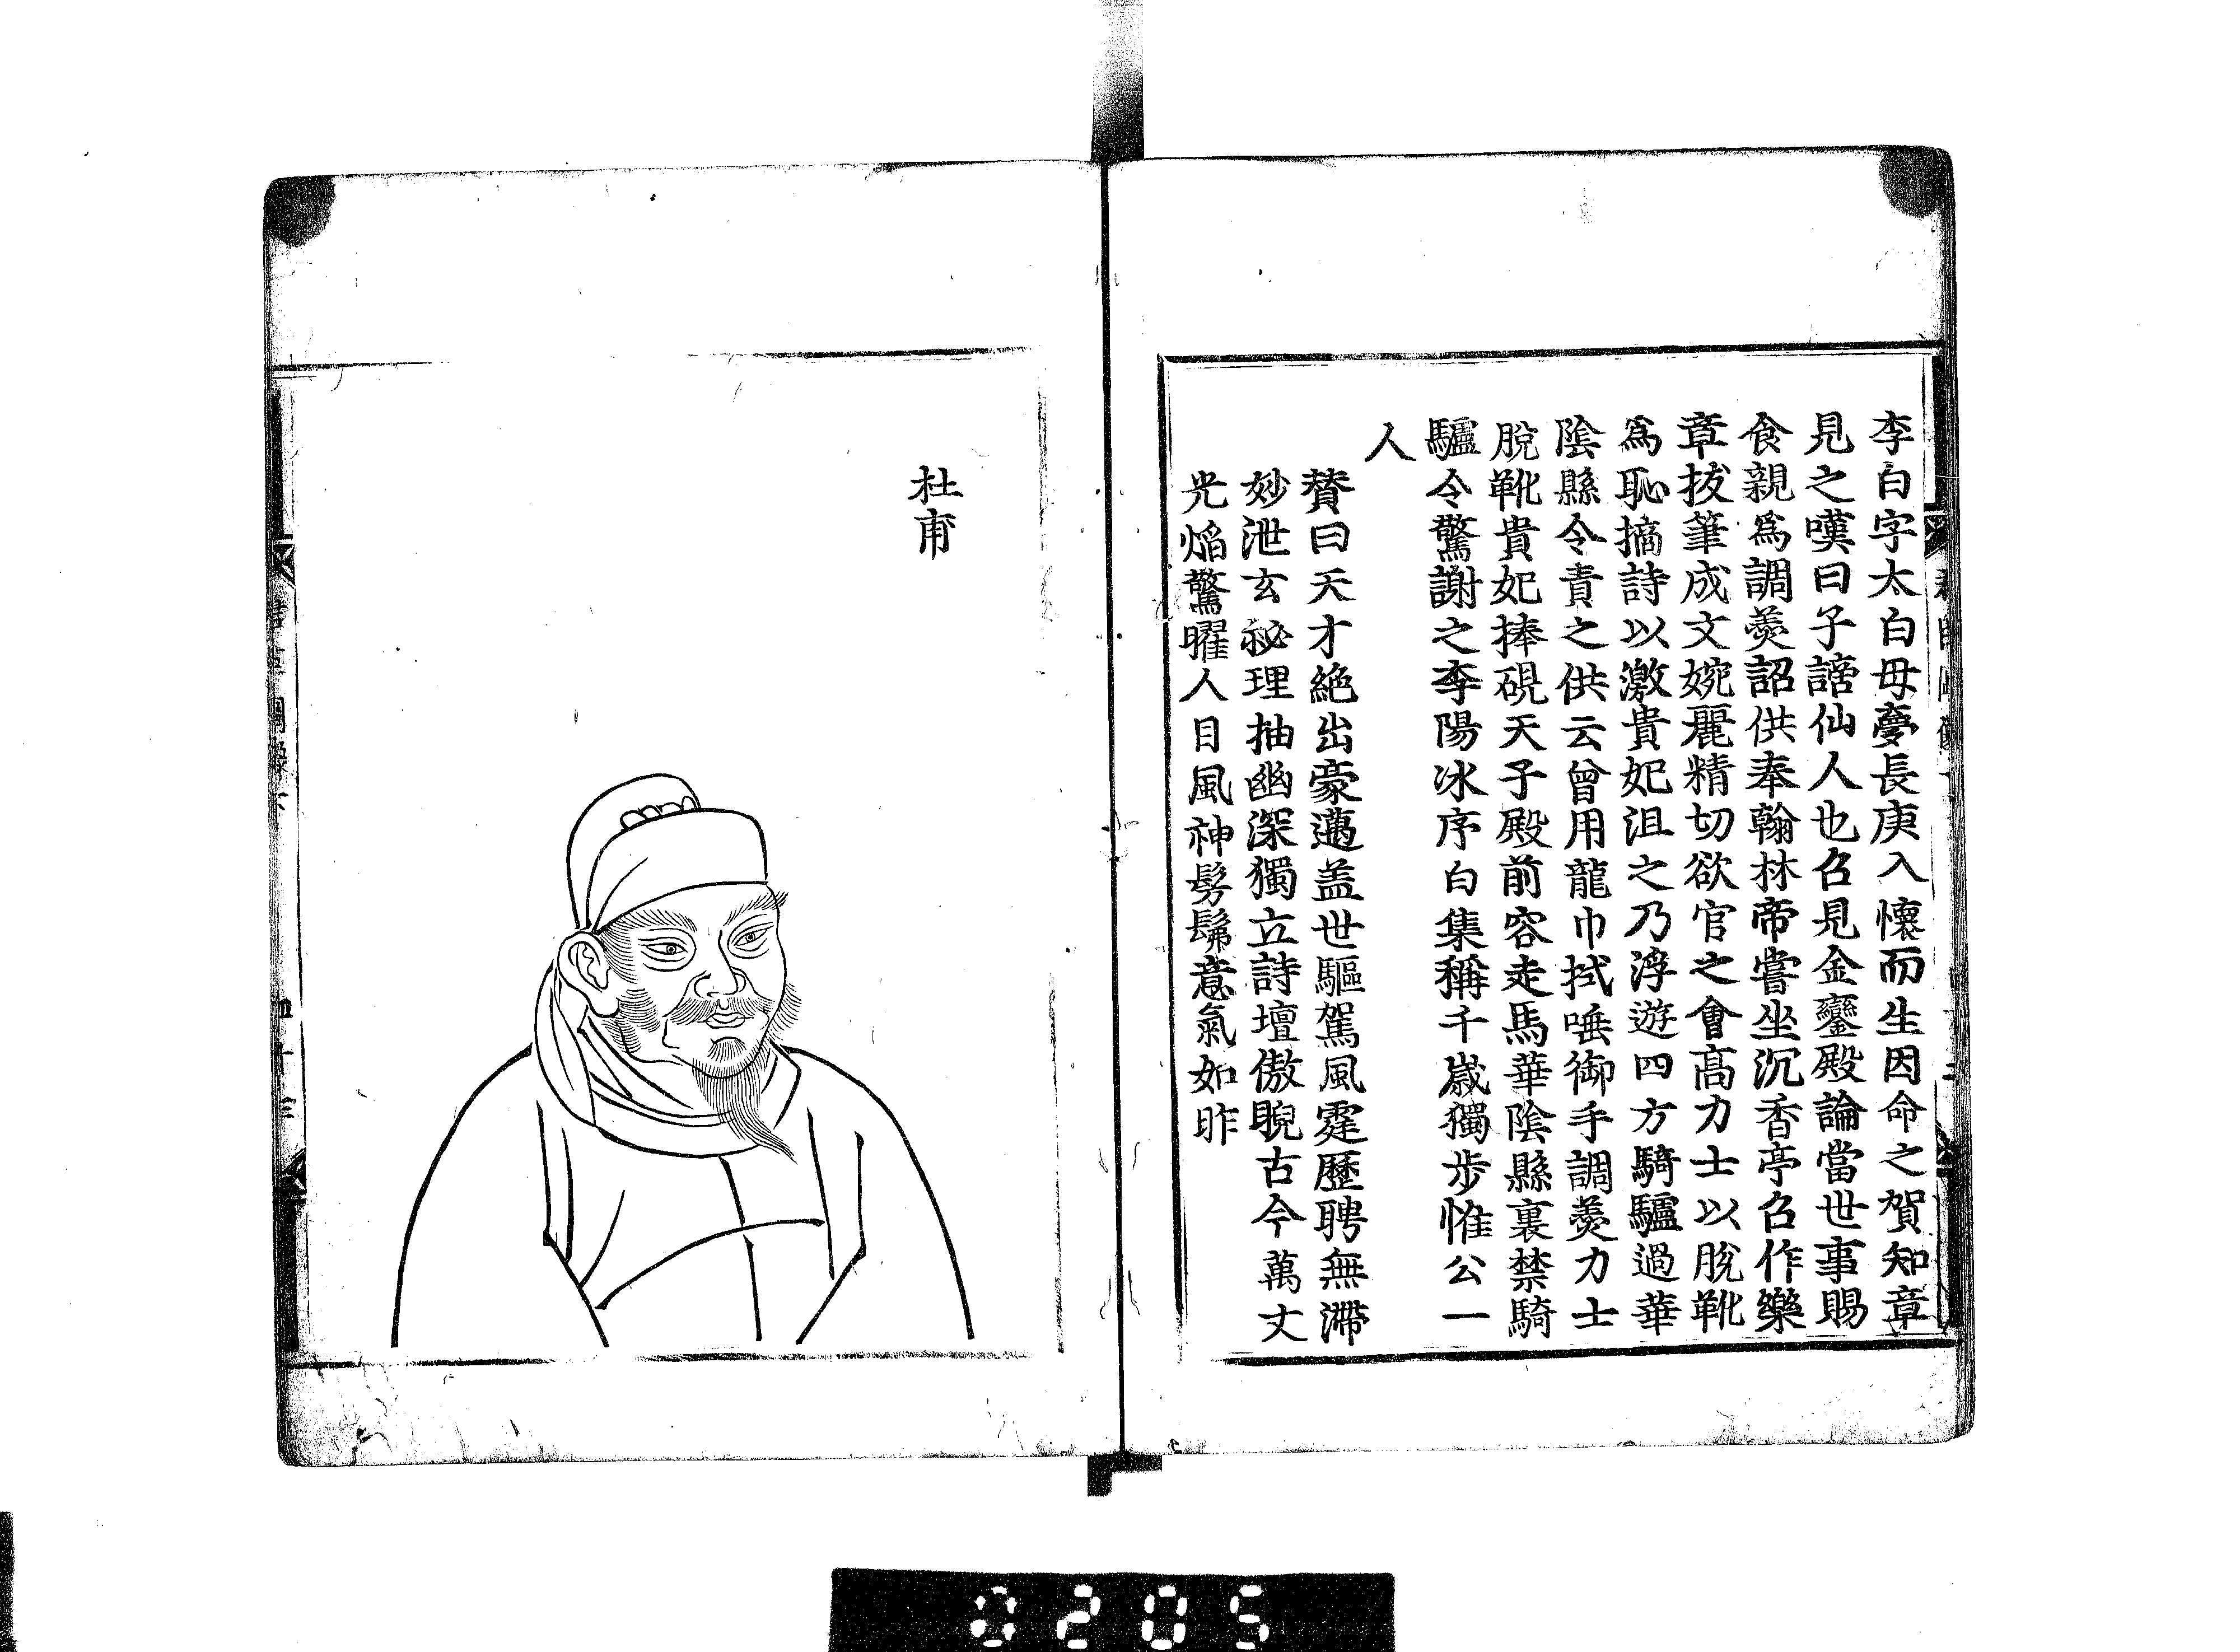 李白字太白母夢長庚入懷而生因命之賀知章
見之嘆曰子謫仙人也召見金鑾殿論當世事賜
食親爲調羹詔供奉翰林帝嘗坐沉香亭召作樂
章拔筆成文婉麗精切欲官之會高力士以脫靴
爲恥摘詩以激貴妃沮之乃浮遊四方騎驢過華
陰縣令責之供云曾用龍巾拭唾御手調羹力士
脫靴貴妃捧硯天子殿前容走馬華陰縣裏禁騎
驢令驚謝之李陽冰序白集稱千歲獨步惟公一
人
賛曰天才絶出豪邁盖世驅駕風霆歷聘無滯
妙泄玄祕理抽幽深獨立詩壇傲睨古今萬丈
光焔驚曜人目風神髣髴意氣如昨
杜甫
0205